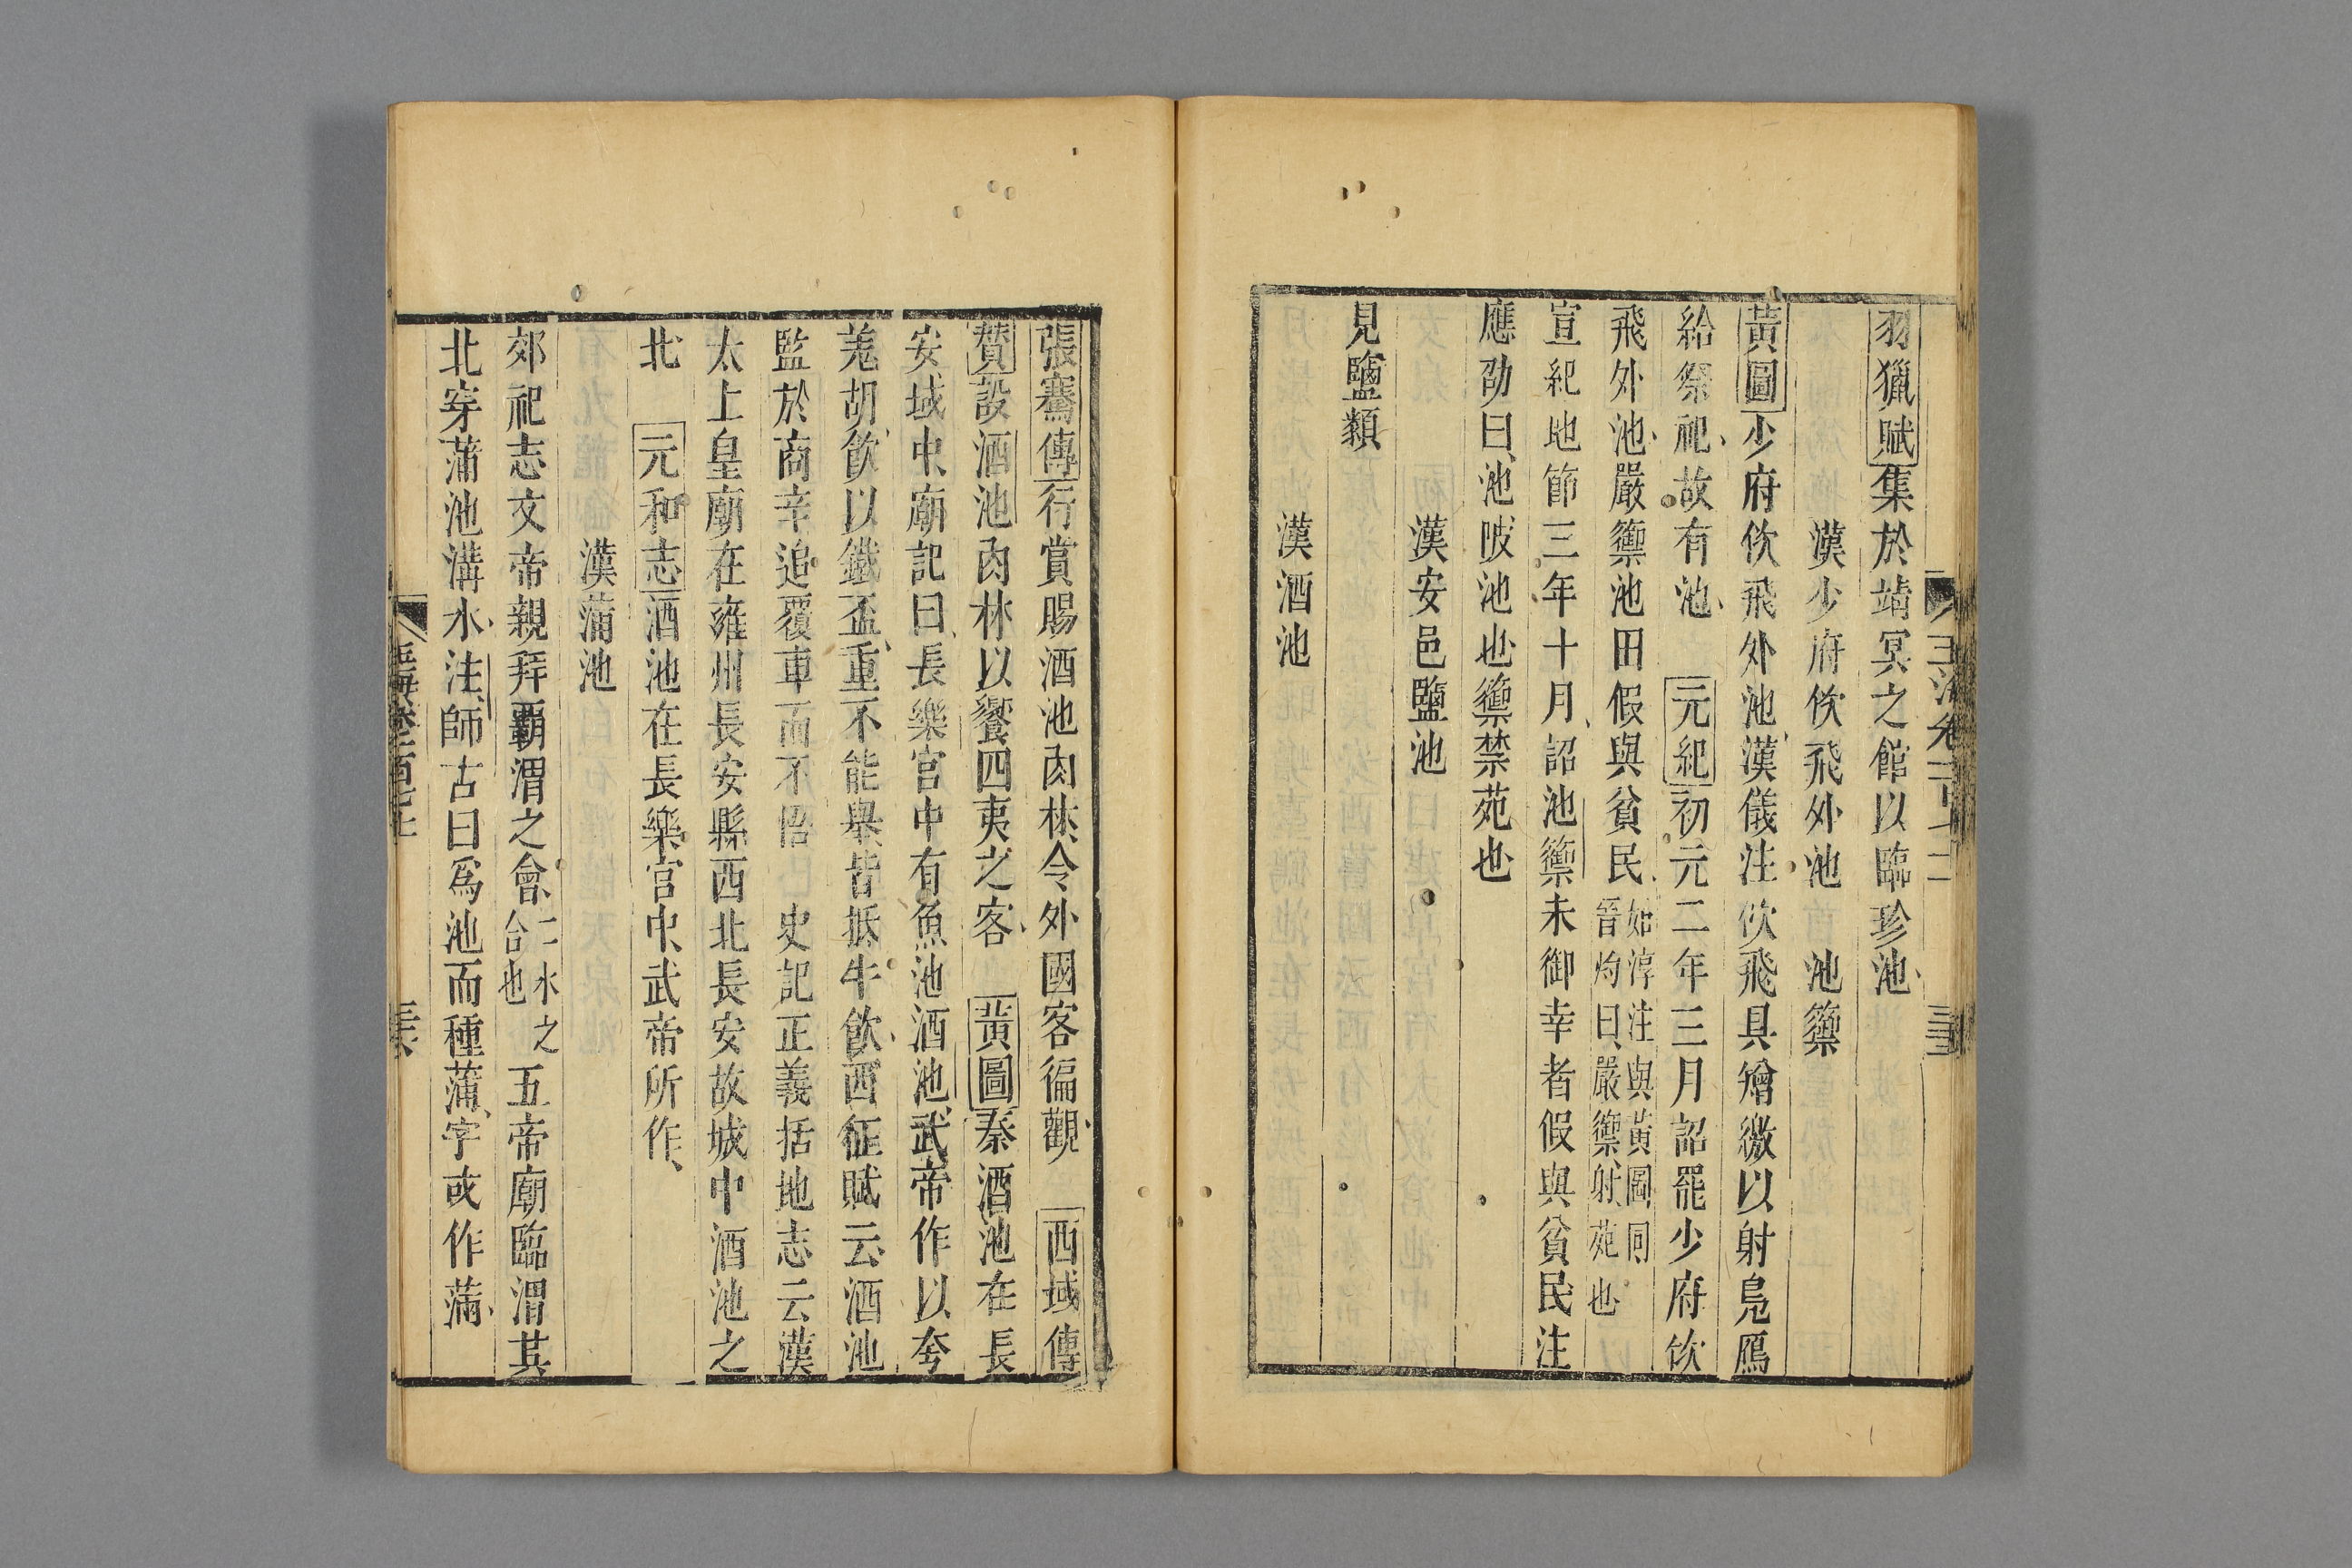 羽獵賦集於靖冥之館以臨珍池
漢少府佽飛外池 池籞
黃圖少府佽飛外池漢儀注佽飛具矰繳以射鳧鴈
給祭祀故有池 元紀初元二年三月詔罷少府佽
飛外池嚴籞池田假與貧民如淳注與黃圖同晉灼曰嚴籞射苑也
宣紀地節三年十月詔池籞未御幸者假與貧民注
應劭曰池陂池也籞禁苑也
漢安邑鹽池
見鹽類
漢酒池
張騫傳行賞賜酒池肉林令外國客徧觀 西域傳
贊設酒池肉林以饗四夷之客 黃圖秦酒池在長
安城中廟記曰長樂宮中有魚池酒池武帝作以夸
羌胡飲以鐵盃重不能舉皆抵牛飲西征賦云酒池
監於商辛追覆車而不悟 史記正義括地志云漢
太上皇廟在雍州長安縣西北長安故城中酒池之
北 元和志酒池在長樂宮中武帝所作
漢蒲池
郊祀志文帝親拜霸渭之會二水之合也五帝廟臨渭其
北穿蒲池溝水注師古曰為池而種蒲字或作滿